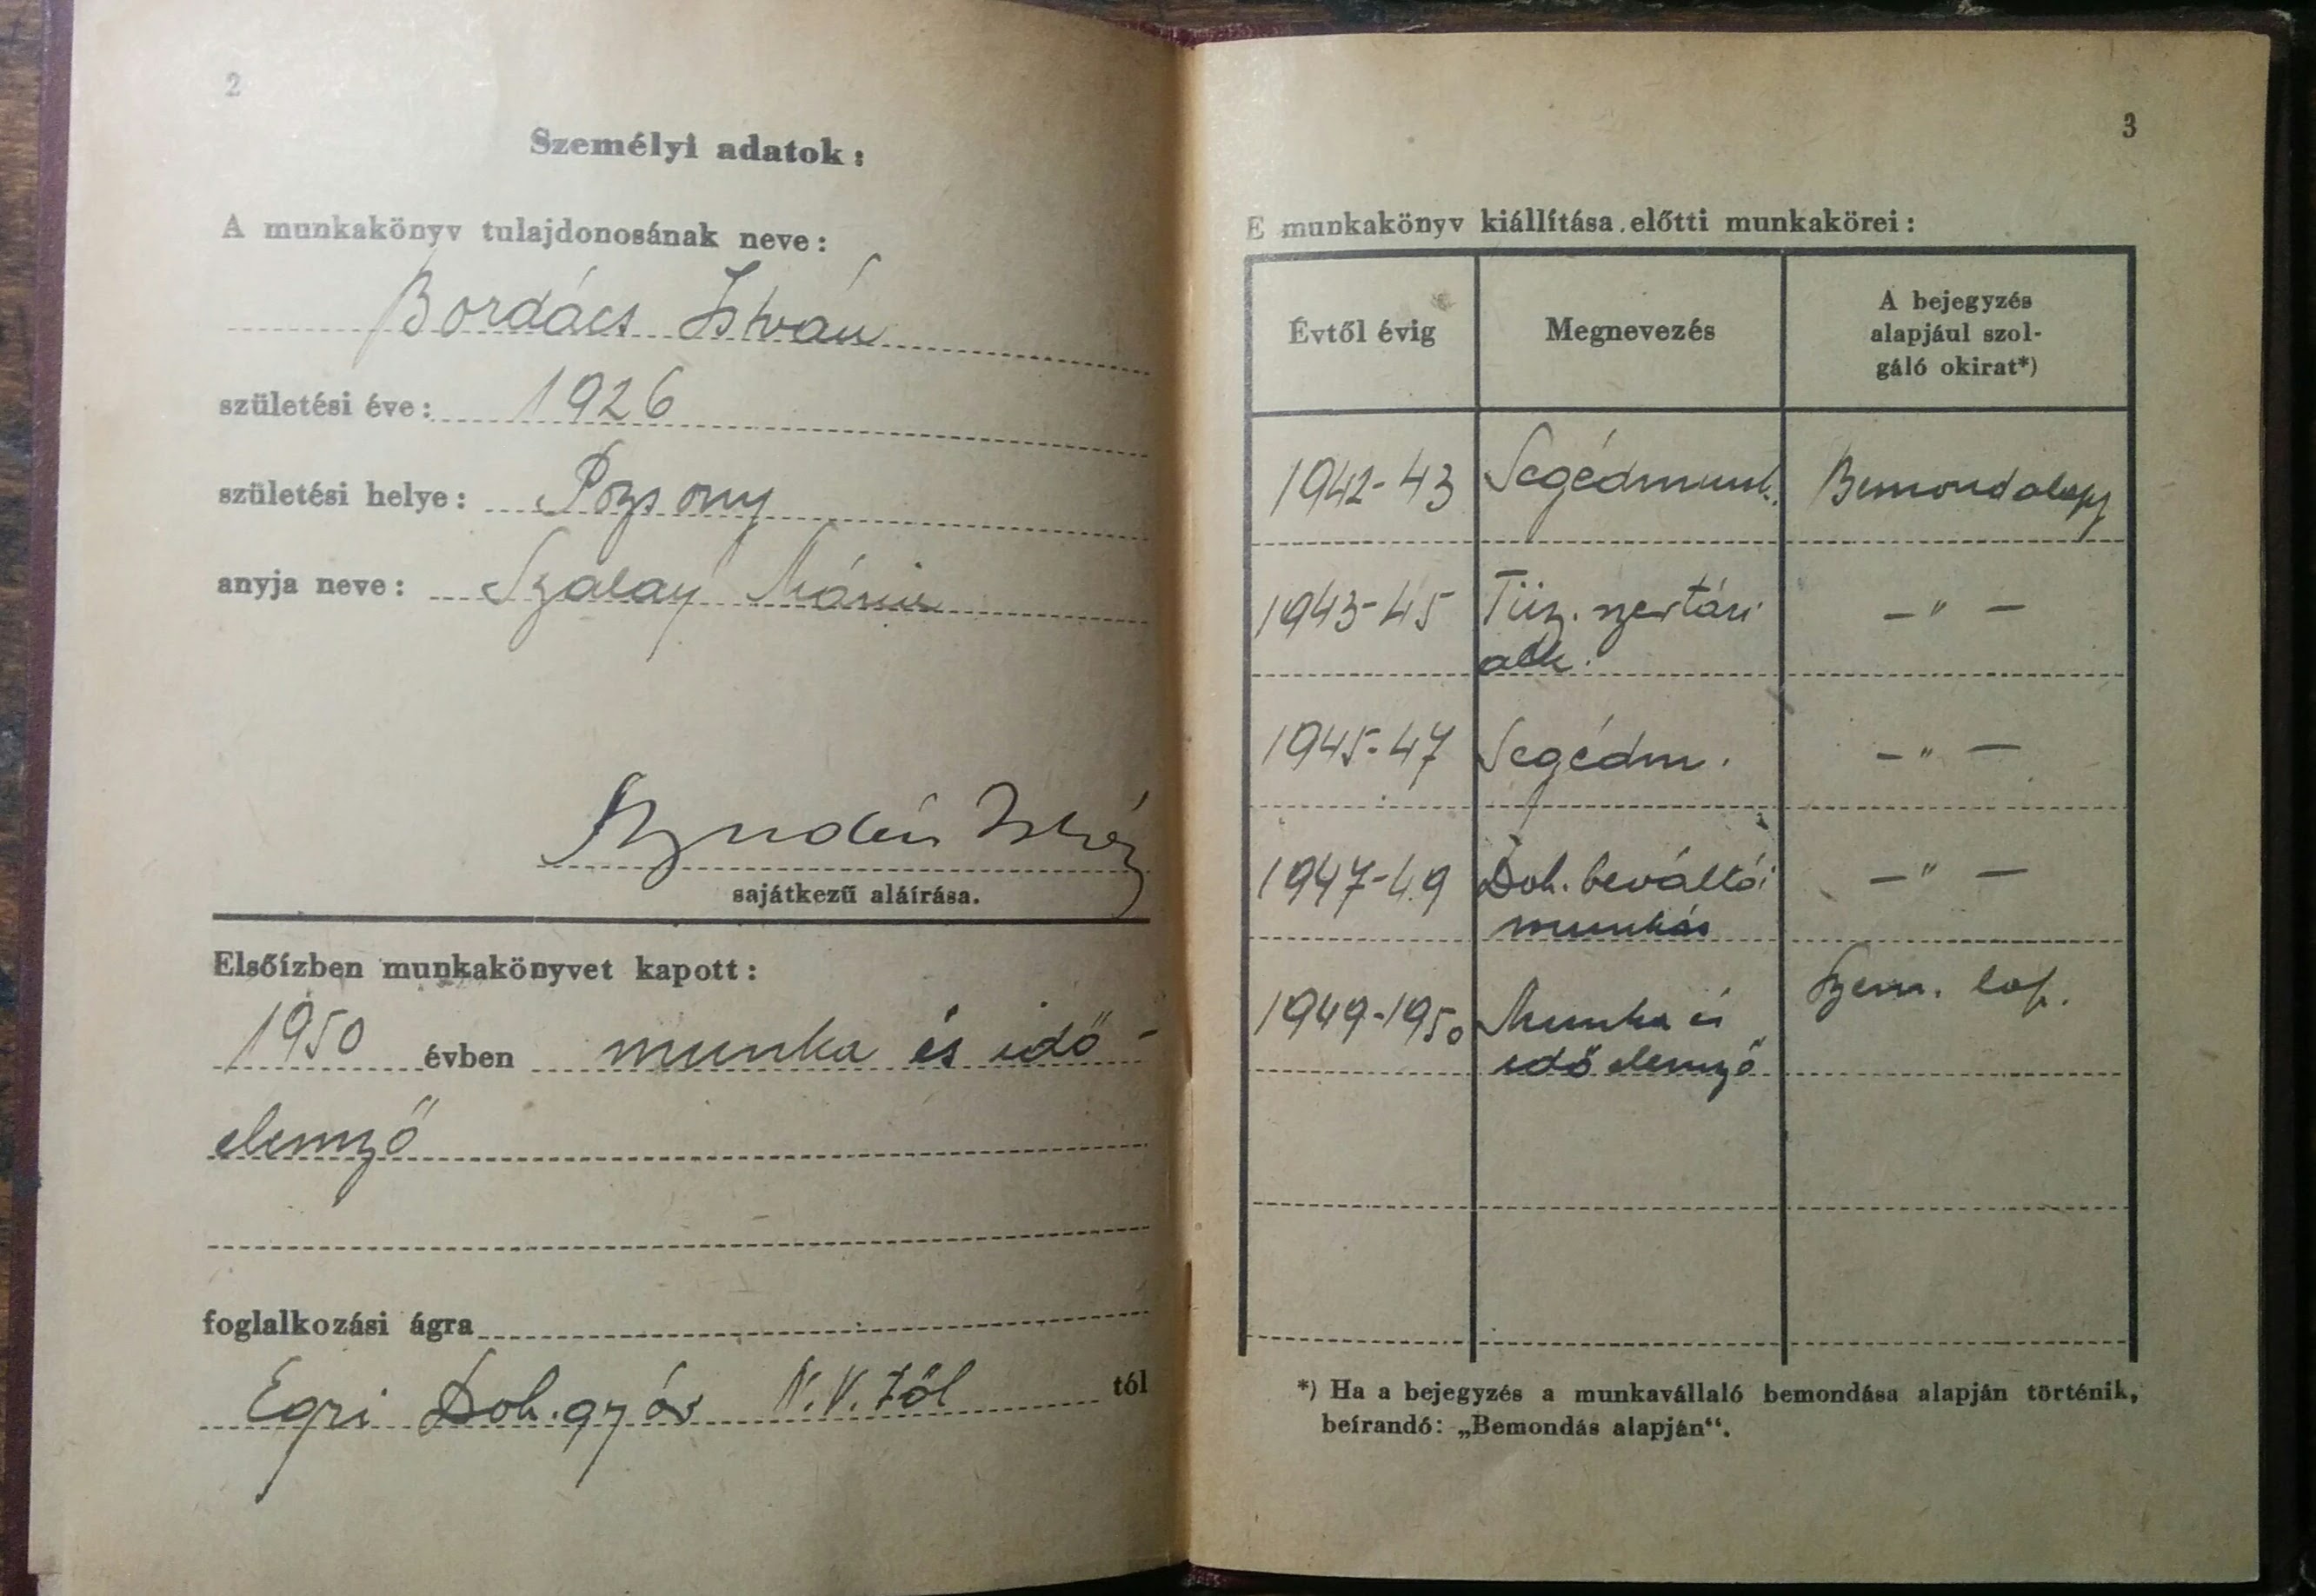 2
Személyi adatok:
A munkakönyv tulajdonosának neve:
Bordács István
születési éve: 1926
születési helye: Pozsony
anyja neve: Szalay Mária
sajátkezű aláírása.
Elsőízben munkakönyvet kapott:
1950 évben munka és idő-
elemző
foglalkozási ágra
Egri Doh. gyár N.V. től tól
3
E munkakönyv kiállítása előtti munkakörei:
Évtől évig Megnevezés A bejegyzés
alapjául szol-
gáló okirat*)
1942-43 Segédmunk. Bemond alapj
1943-45 Tüz. szertári — " —
alk.
1945-47 Segédm. — " —
1947-49 Doh. beváltói — " —
munkás
1949-1950 Munka és Szem. lap.
idő elemző
*) Ha a bejegyzés a munkavállaló bemondása alapján történik,
beírandó: „Bemondás alapján“.